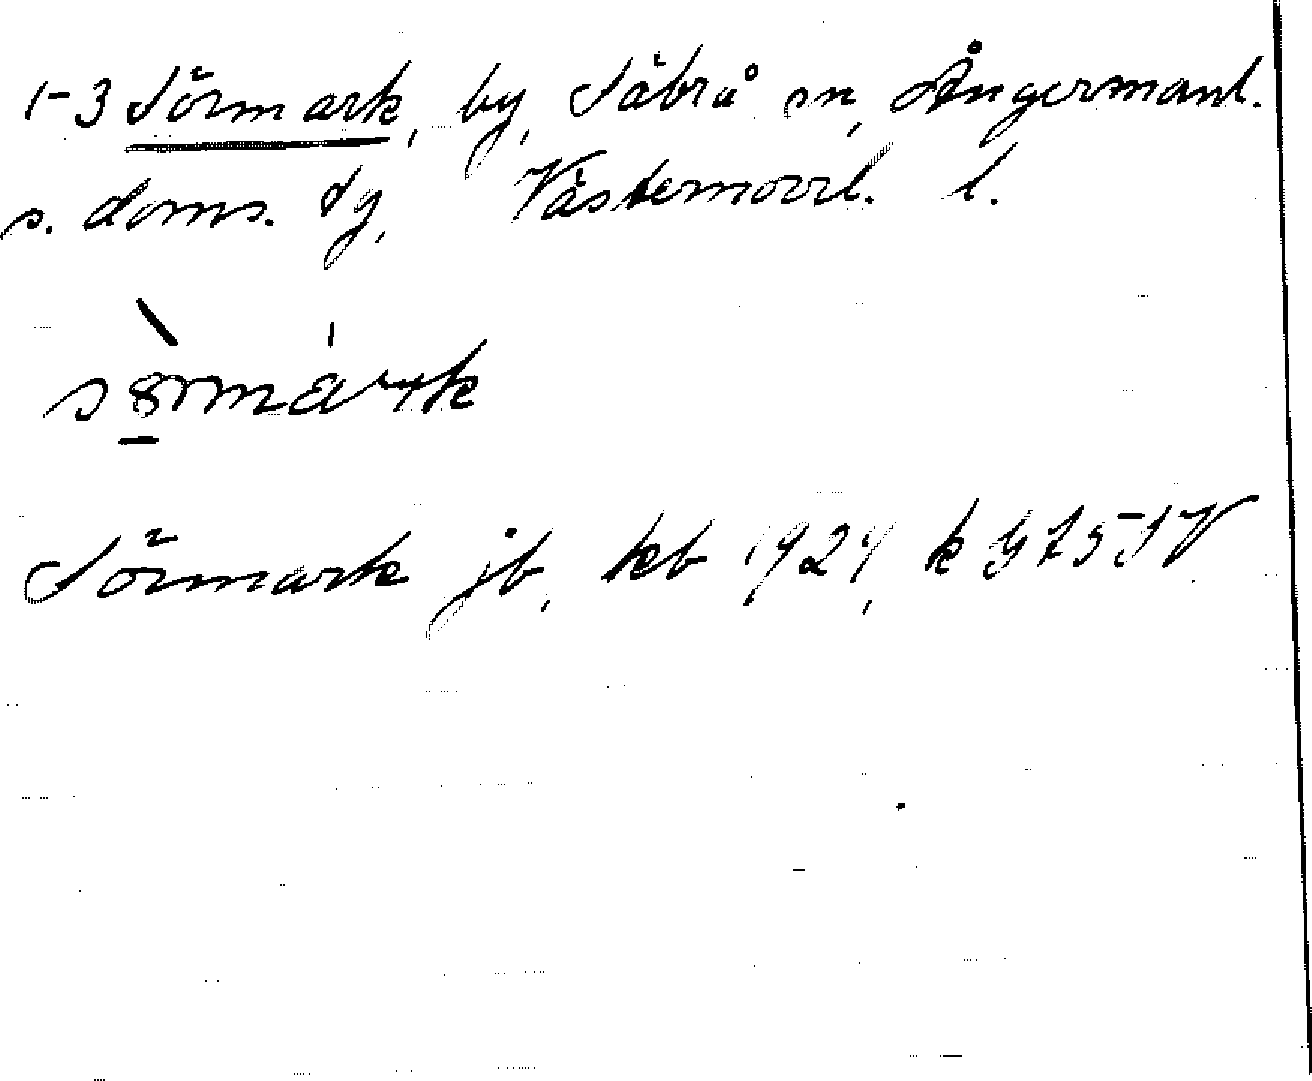 1-3 Sörmark, by, Säbrå sn, Ångermanl.
s. doms. dg, Västernorrl. l.
sörmark
Sörmark jb, kb 1924, k